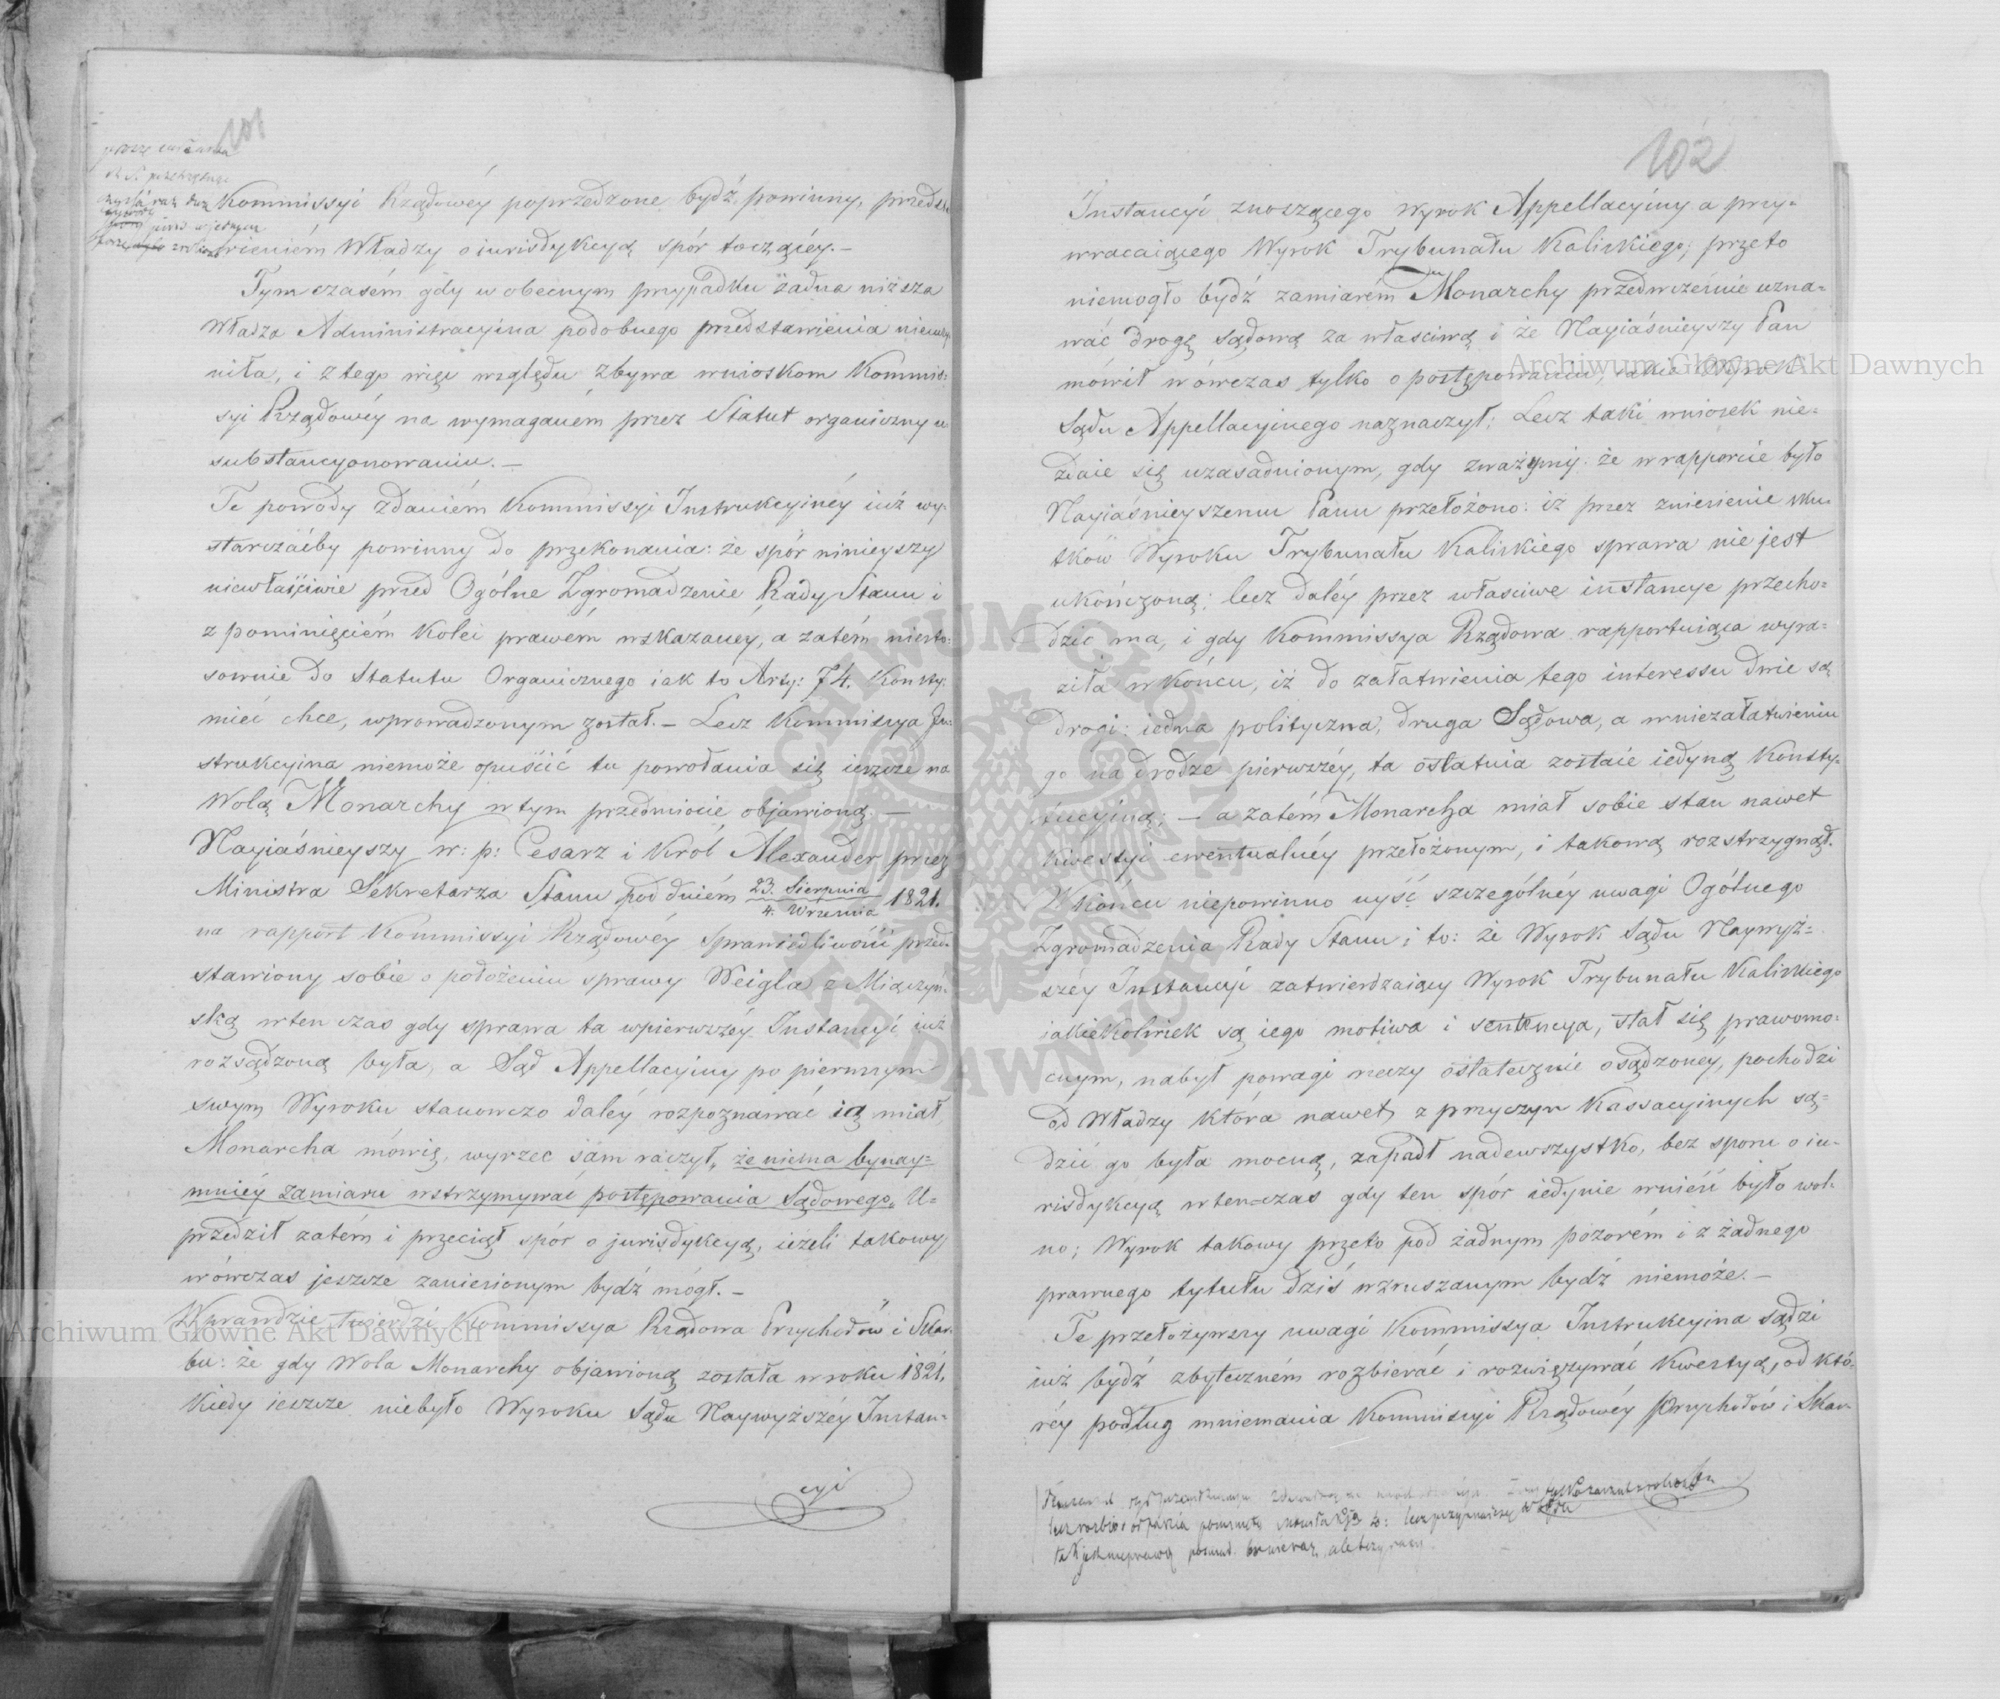 101
Kommissyi Rządowéy poprzedzone bydź powinny, przedsta
wieniém Władzy o iurisdykcyą spór toczącéy. –
Tymczasém gdy w obecnym przypadku żadna niższa
Władza Administracyina podobnego przedstawienia nieuczy
niła, i z tego więc względu zbywa wnioskom Kommis:
syi Rządowéy na wymaganém przez Statut organiczny u
substancyonowaniu. –
Te powody zdaniém Kommissyi Instrukcyinéy iuż wy:
starczaćby powinny do przekonania: że spór ninieyszy
niewłaściwie przed Ogólne Zgromadzenie Rady Stanu i
z pominięciém Kolei prawem wskazaney, a zatém niesto:
sownie do Statutu Organicznego iak to Arty: 74. Konsty:
mieć chce, wprowadzonym został. – Lecz Kommissya In:
strukcyina niemoże opuścić tu powołania się ieszcze na
Wolą Monarchy w tym przedmiocie objawioną. –
Nayiaśnieyszy w: p: Cesarz i Król Alexander przez
Ministra Sekretarza Stanu pod dniém 23. Sierpnia / 4. Września 1821.
na rapport Kommissyi Rządowéy Sprawiedliwości przed:
stawiony sobie o położeniu sprawy Weigla z Miączyń:
ską wtenczas gdy sprawa ta w pierwszéy Instancyi iuż
rozsądzoną była, a Sąd Appellacyiny po pierwszym
swym Wyroku stanowczo daléy rozpoznawać ią miał,
Monarcha mówię, wyrzec sám raczył, że niema bynay=
mniéy zamiaru wstrzymywać postępowania Sądowego. U=
przedził zatém i przeciął spór o jurisdykcyą, ieżeli takowy
wówczas jeszcze zaniesionym bydź mógł. –
Wprawdzie twierdzi Kommissya Rządowa Przychodów i Skar:
bu: że gdy Wola Monarchy objawioną została w roku 1821.
Kiedy ieszcze niebyło Wyroku Sądu Naywyższéy Instan=
cyi
102
Instancyi znoszącego Wyrok Appellacyiny a przy=
wracaiącego Wyrok Trybunału Kaliskiego; przeto
niemogło bydź zamiarém Monarchy przedwcześnie uzna=
wać drogę Sądową za właściwą i że Nayiaśnieyszy Pan
mówił wówczas tylko o postępowaniu, iakie Wyrok
Sądu Appellacyinego naznaczył: Lecz taki wniosek nie=
zdaie się uzasadnionym, gdy zważymy: że w rapporcie było
Nayiaśnieyszemu Panu przełożono: iż przez zniesienie sku=
tków Wyroku Trybunału Kaliskiego sprawa nie jest
ukończoną; lecz daléy przez właściwe instancye przecho=
dzić ma, i gdy Kommissya Rządowa rapportuiąca wyra=
ziła w końcu, iż do załatwienia tego interessu dwie są
drogi: iedna polityczna, druga Sądowa, a w niezałatwieniu
go na drodze pierwszéy, ta ostatnia zostaie iedyną Konsty=
tucyiną; – a zatém Monarcha miał sobie stan nawet
kwestyi ewentualnéy przełożonym, i takową rozstrzygnął.
W końcu niepowinno uyść szczególnéy uwagi Ogólnego
Zgromadzenia Rady Stanu i to: że Wyrok Sądu Naywyż=
széy Instancyi zatwierdzaiący Wyrok Trybunału Kaliskiego
iakiekolwiek są iego motiwa i sentencya, stał się prawomo:
cnym, nabył powagi rzeczy ostatecznie osądzoney, pochodzi
od Władzy która nawet z przyczyn Kassacyinych są=
dzić go była mocną, zapadł nadewszystko, bez sporu o iu=
risdykcyą wtenczas gdy ten spór iedynie wnieść było wol=
no; Wyrok takowy przeto pod żadnym pozorém i z żadnego
prawnego tytułu dziś wzruszanym bydź niemoże. –
Te przełożywszy uwagi Kommissya Instrukcyina sądzi
iuż bydź zbyteczném rozbierać i rozwięzywać Kwestyą, od któ=
réy podług mniemania Kommissyi Rządowéy Przychodów i Skar=
bu